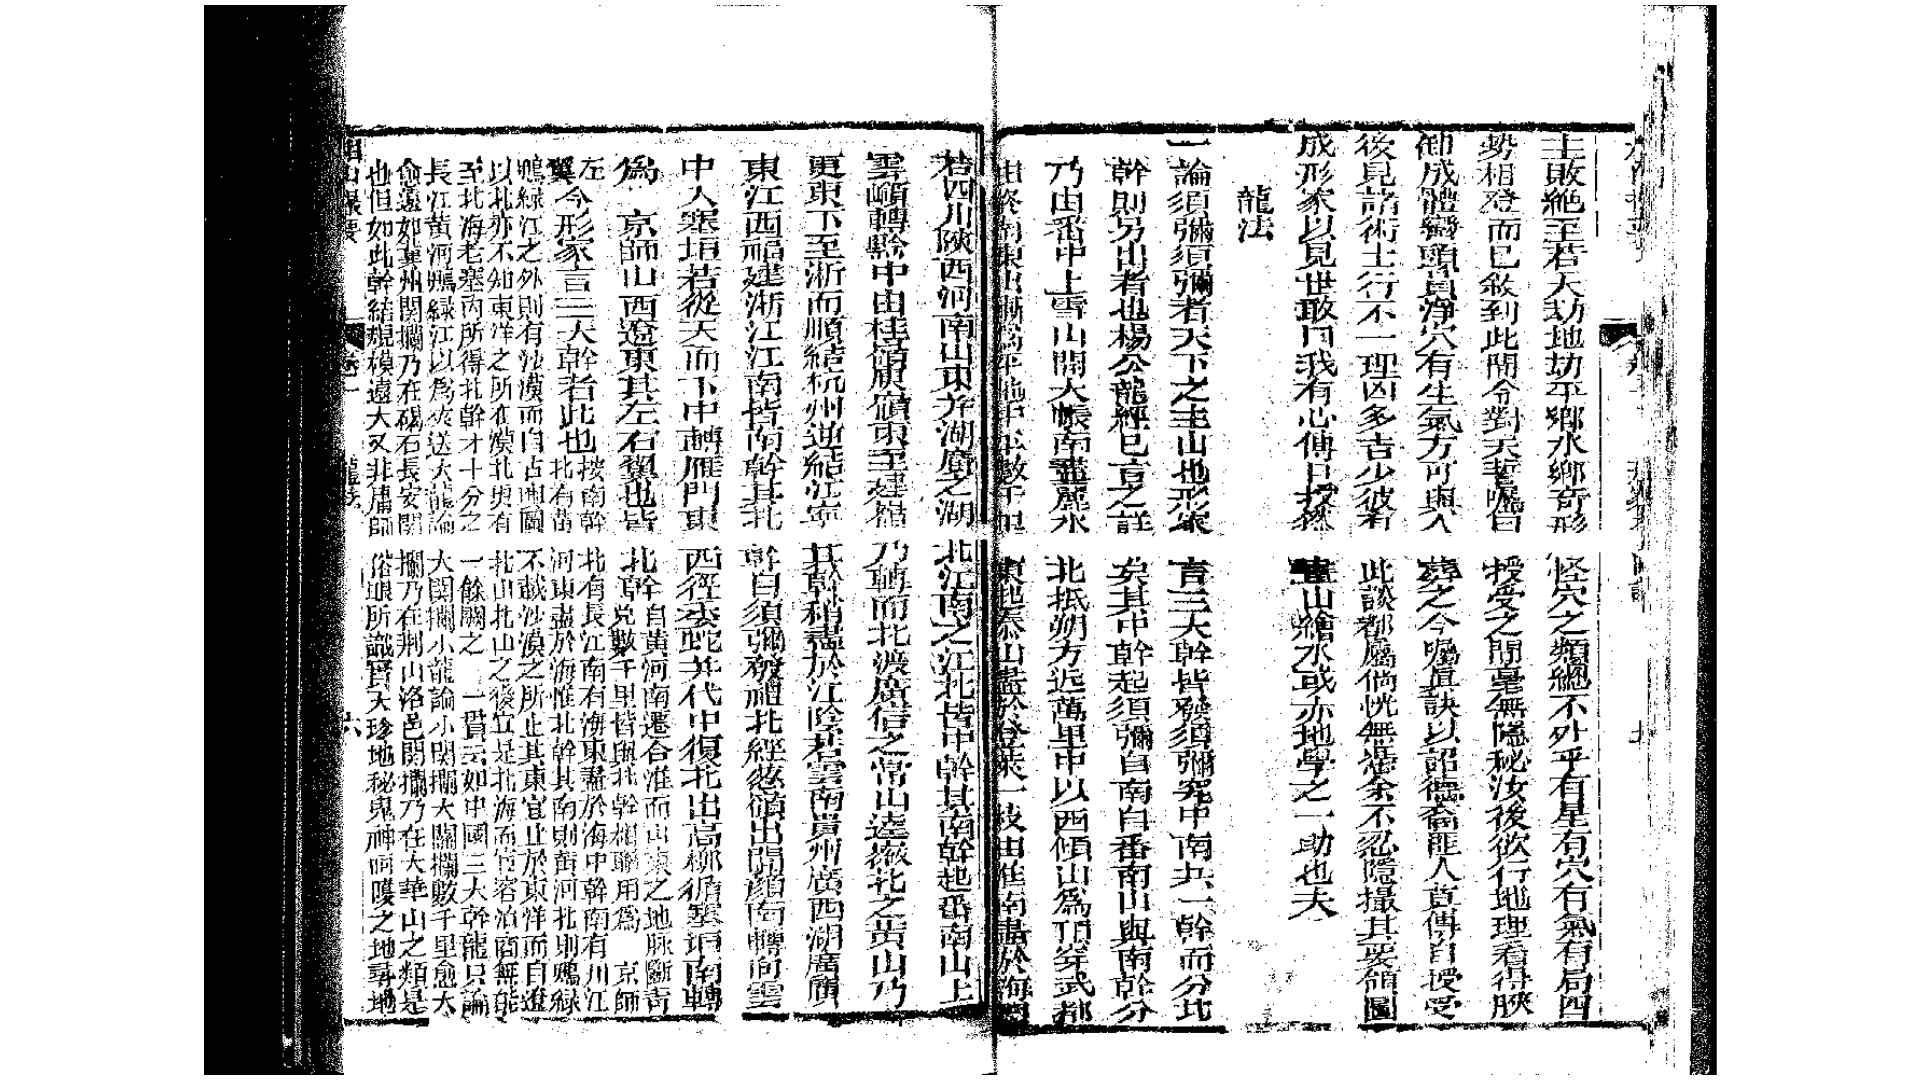 主敗絶至若天劫地劫平鄉水鄉奇形怪穴之類總不外乎有星有穴有氣有局四
勢相登而已敘到此間令對天誓囑曰授受之間毫無隱秘汝後欲行地理看得勝
御成體巒頭員淨穴有生氣方可與人葬之今囑眞訣以詔德裔匪人莫傳自授受
後見諸術士行不一理凶多吉少彼者此談都屬倘恍無憑余不忍隱撮其妥領圖
成形家以見世敢曰我有心傳口授然畫山繪水或亦地學之一助也夫
龍法
一論須彌須彌者天下之主山也形家言三大幹皆發須彌究中南共一幹而分北
幹則另出者也楊公龍經已言之詳矣其中幹起須彌自南自番南山與南幹分
乃由番中上雪山開大帳南盡麗水北抵朔方近萬里中以西傾山爲頂穿武都
由終南東出嵩爲平地中半數千里東起泰山盡於登萊一枝由淮南盡於海門
若四川陝西河南山東并湖廣之湖北江南之江北皆中幹其南幹起番南山上
雲嶺轉黔中由桂嶺庾嶺東至建福乃轉而北渡廣信之常山達嶽北之黃山乃
更東下至浙而順結杭州逆結江寧其幹稍盡於江陰若雲南貴州廣西湖廣廣
東江西福建浙江江南皆南幹其北幹自須彌發離北經葱嶺出開顏南轉向雲
中入塞垣若從天而下中轉雁門東西徑委蛇并代中復北出高柳循塞垣南轉
爲 京師山西遼東其左右翼也皆北幹自黃河南遷合淮而山東之地脉斷青兗數千里皆與北幹相聯用爲 京師左翼
今形家言三大幹者此也按南幹北有長江南有海東盡於海中幹南有川江北有黃河東盡於海惟北幹其南則黃河北則鴨綠
鴨綠江之外則有沙漠而自古輿圖不載沙漠之所止其東宜止於東洋而自遼
以北亦不知東洋之所在漠北更有北山北山之後宜是北海而荒落泊商無能
至北海老塞內所得北幹才十分之一餘闕之 一貫云如中國三大幹龍只論
長江黃河鴨綠江以爲夾送大龍論大關攔小龍論小關攔大關攔數千里愈大
愈遠如冀州關攔乃在碣石長安關攔乃在荆山洛邑關攔乃在大華山之類是
也但如此幹結規模遠大又非庸師俗眼所識實天珍地秘鬼神呵護之地尋地
卷一
龍法
六